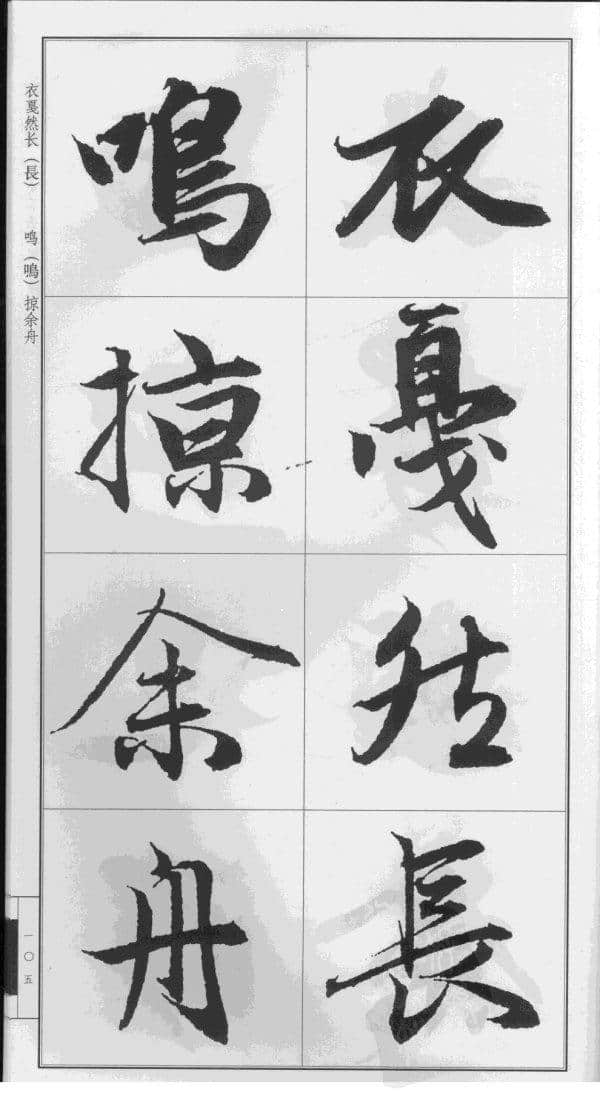 衣戛然長
鳴掠余舟
衣戛然长（長）　鸣（鳴）掠余舟
一〇五